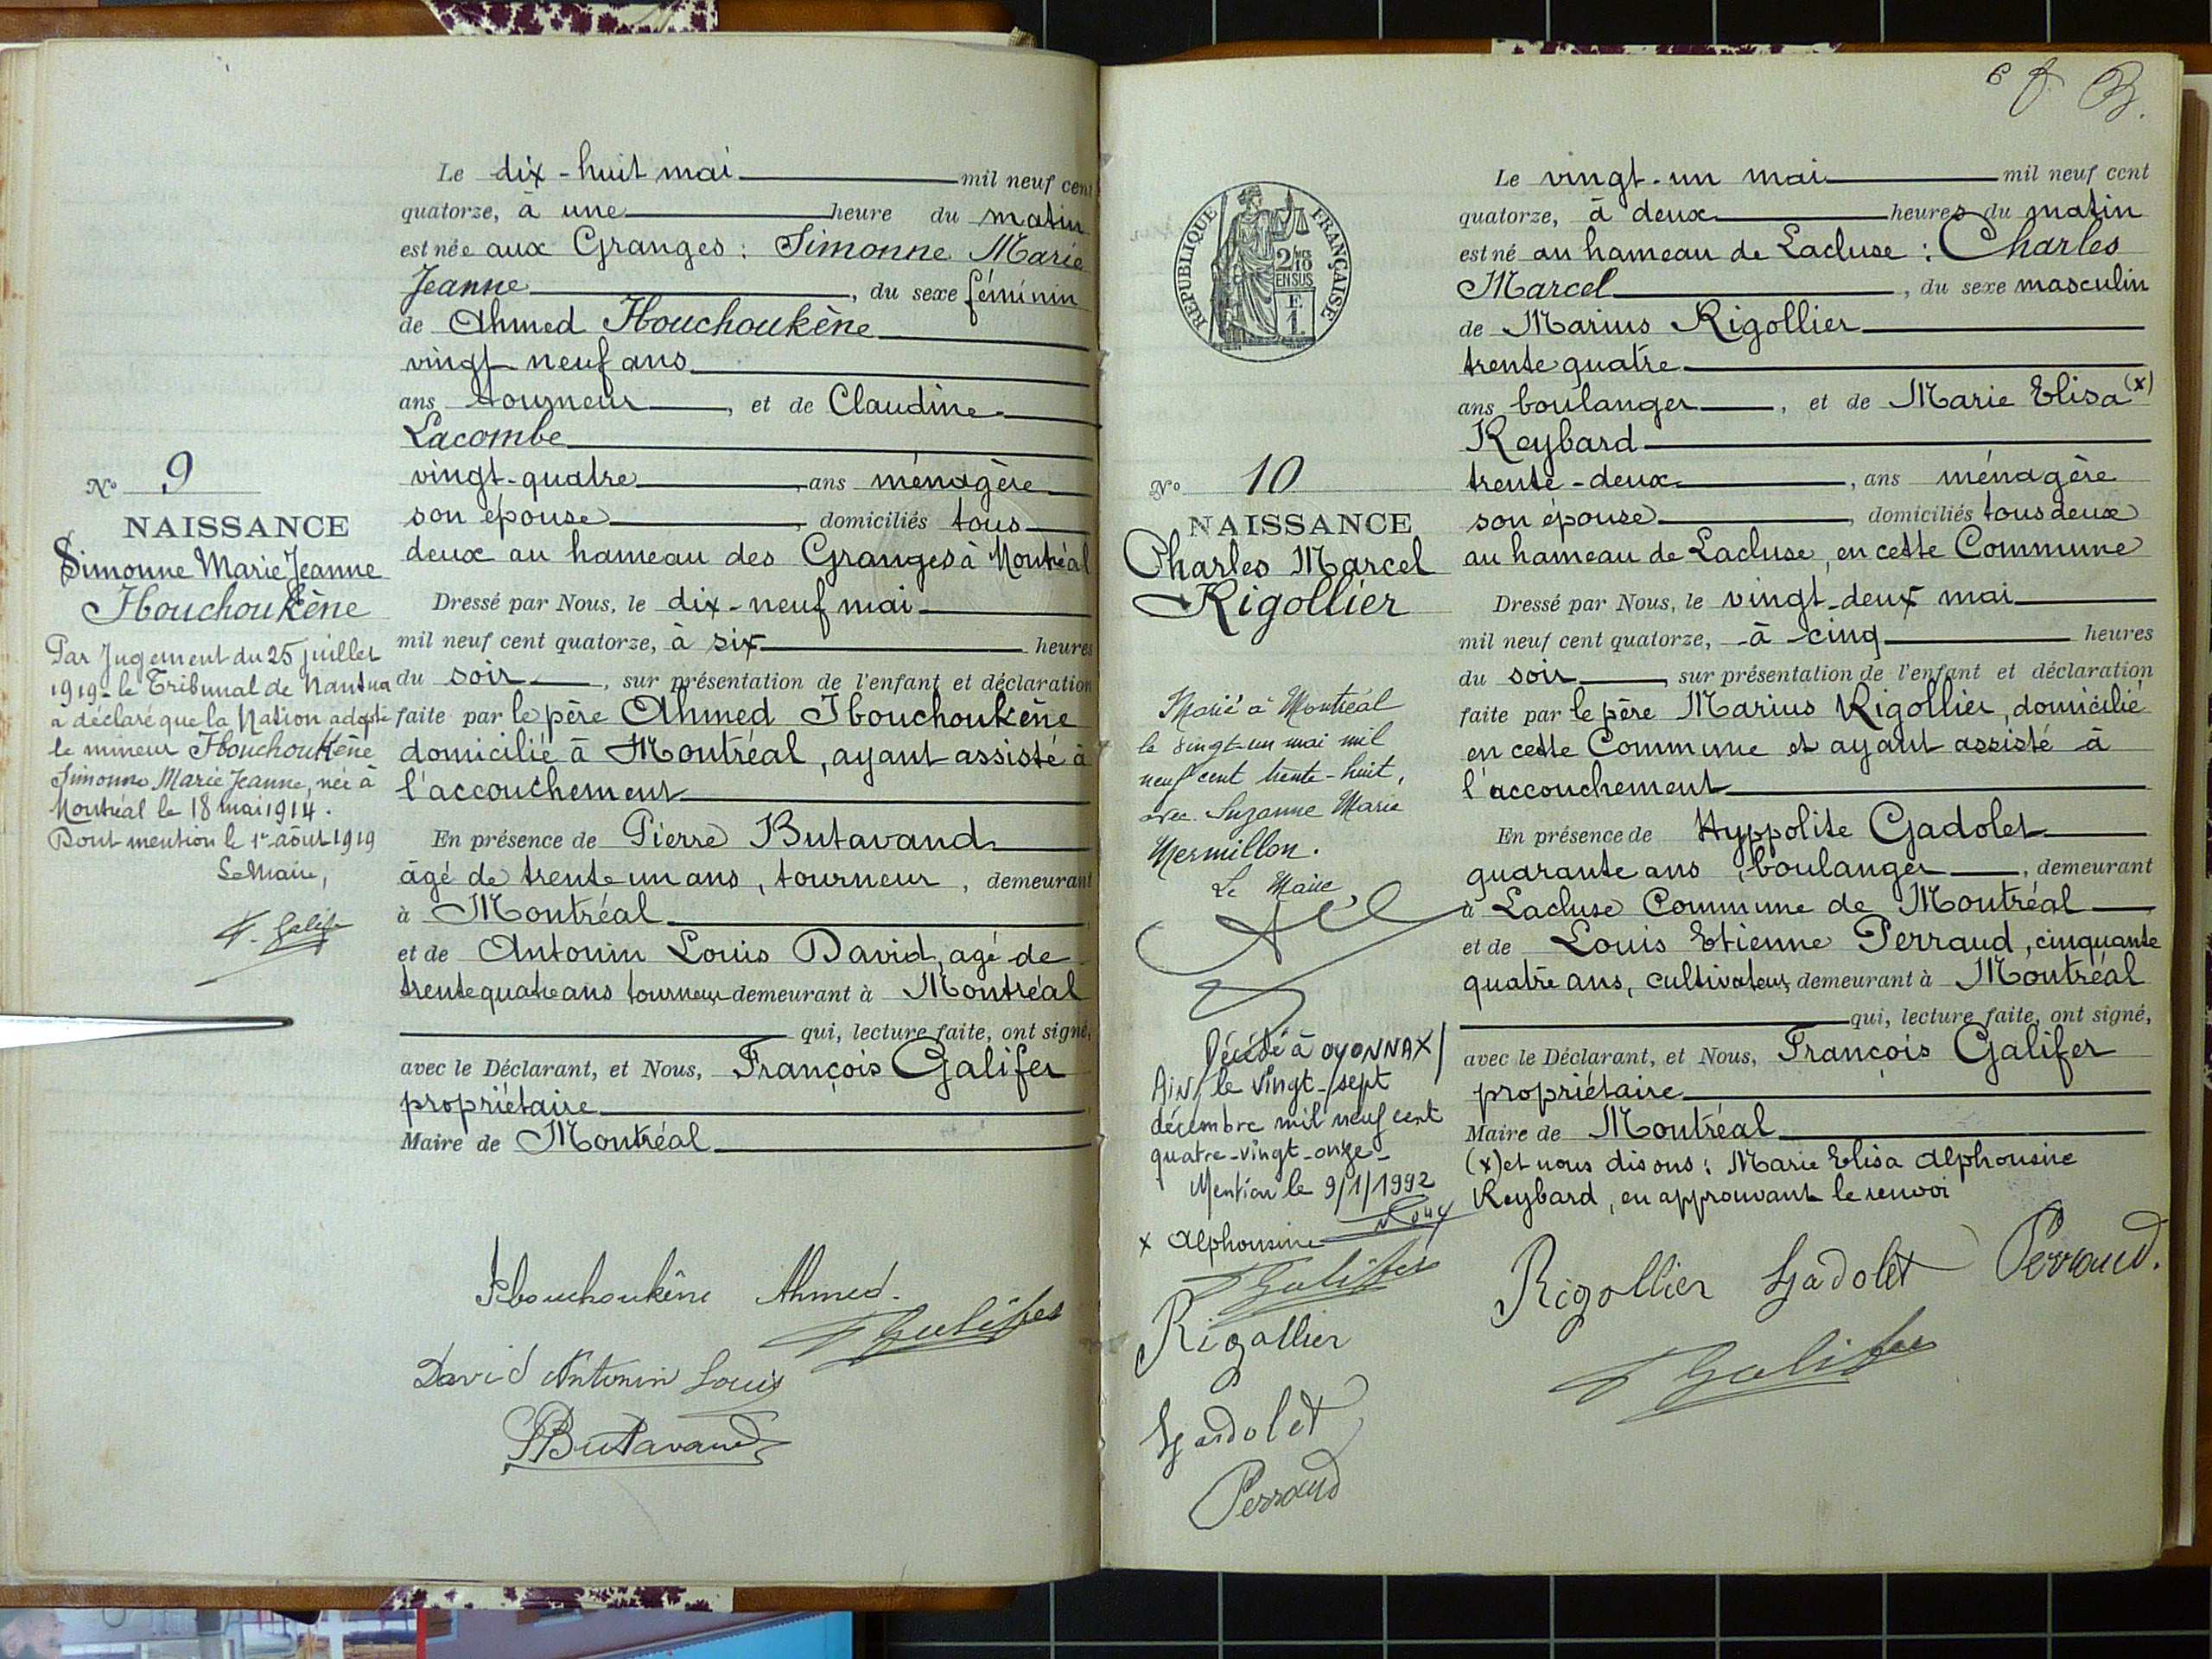 Le dix-huit mai mil neuf cent
quatorze, à une heure du matin
est née aux Granges : Simonne Marie
Jeanne, du sexe féminin
de Ahmed Ibouchoukène
vingt neuf ans
ans tourneur, et de Claudine
Lacombe
vingt-quatre, ans ménagère
son épouse, domiciliés tous
deux au hameau des Granges à Montréal
Dressé par Nous, le dix-neuf mai
mil neuf cent quatorze, à six heures
du soir, sur présentation de l'enfant et déclaration
faite par le père Ahmed Ibouchoukène
domicilié à Montréal, ayant assisté à
l'accouchement
En présence de Pierre Butavand
âgé de trente un ans, tourneur, demeurant
à Montréal
et de Antonin Louis David, agé de
trente quatre ans tourneur demeurant à Montréal
qui, lecture faite, ont signé,
avec le Déclarant, et Nous, François Galifer
propriétaire
Maire de Montréal
Ibouchoukène Ahmed.
Galifer
David Antonin Louis
PButavand
N° 9
NAISSANCE
Simonne Marie Jeanne
Ibouchoukène
Par Jugement du 25 juillet
1919 le Tribunal de Nantua
a déclaré que la Nation adopte
le mineur Ibouchoukène
Simonne Marie Jeanne, née à
Montréal le 18 mai 1914.
Dont mention le 1er août 1919
Le Maire,
F. Galifer
6
Le vingt-un mai mil neuf cent
quatorze, à deux heures du matin
est né au hameau de Lacluse : Charles
Marcel, du sexe masculin
de Marius Rigollier
trente quatre
ans boulanger, et de Marie Elisa (x)
Reybard
trente-deux, ans ménagère
son épouse, domiciliés tous deux
au hameau de Lacluse, en cette Commune
Dressé par Nous, le vingt-deux mai
mil neuf cent quatorze, à cinq heures
du soir, sur présentation de l'enfant et déclaration
faite par le père Marius Rigollier, domicilié
en cette Commune et ayant assisté à
l'accouchement
En présence de Hyppolite Gadolet
quarante ans, boulanger, demeurant
à Lacluse Commune de Montréal
et de Louis Etienne Perraud, cinquante
quatre ans, cultivateur, demeurant à Montréal
qui, lecture faite, ont signé,
avec le Déclarant, et Nous, François Galifer
propriétaire
Maire de Montréal
(x) et nous disons : Marie Elisa Alphonsine
Reybard, en approuvant le renvoi
Rigollier Gadolet Perraud.
Galifer
REPUBLIQUE FRANÇAISE
2/10
EN SUS
F
1
N° 10
NAISSANCE
Charles Marcel
Rigollier
Marié à Montréal
le vingt-un mai mil
neuf cent trente-huit,
avec Suzanne Marie
Mermillon.
Le Maire,
Décédé à OYONNAX/
AIN/ le vingt-sept
décembre mil neuf cent
quatre-vingt-onze-
Mention le 9/1/1992
x Alphonsine
Galifer
Rigollier
Gadolet
Perraud